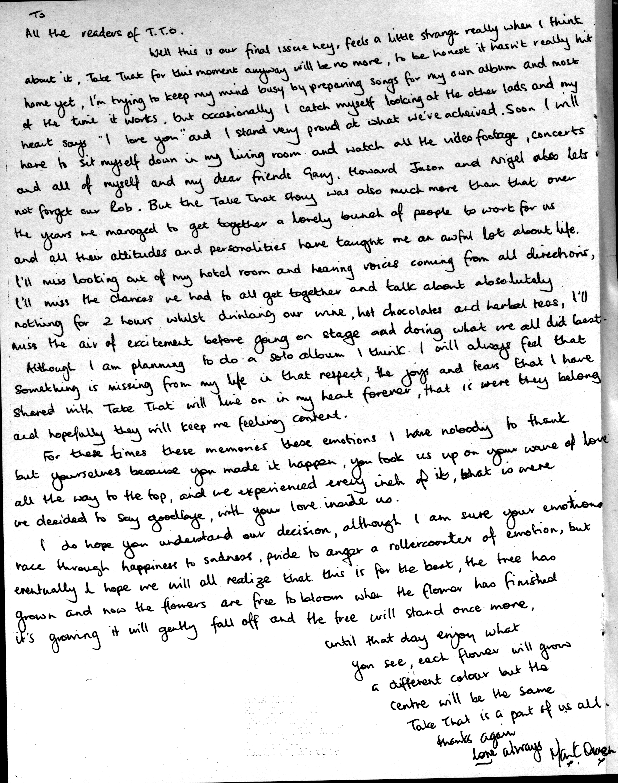 To
All the readers of T.T.O.
Well this is our final issue hey, feels a little strange really when I think
about it, Take That for this moment anyway will be no more, to be honest it hasn't really hit
home yet, I'm trying to keep my mind busy by preparing songs for my own album and most
of the time it works, but occasionally I catch myself looking at the other lads and my
heart says "I love you" and I stand very proud at what we've acheived. Soon I will
have to sit myself down in my living room and watch all the video footage, concerts
and all of myself and my dear friends Gary, Howard Jason and Nigel also lets
not forget our Rob. But the Take That story was also much more than that over
the years we managed to get together a lovely bunch of people to work for us
and all their attitudes and personalities have taught me an awful lot about life.
I'll miss looking out of my hotel room and hearing voices coming from all directions,
I'll miss the chances we had to all get together and talk about absolutely
nothing for 2 hours whilst drinking our wine, hot chocolates and herbal teas, I'll
miss the air of excitement before going on stage and doing what we all did best.
Although I am planning to do a solo album I think I will always feel that
something is missing from my life in that respect, the joys and tears that I have
shared with Take That will live on in my heart forever, that is were they belong
and hopefully they will keep me feeling content.
For these times these memories these emotions I have nobody to thank
but yourselves because you made it happen, you took us up on your wave of love
all the way to the top, and we experienced every inch of it, that is were
we decided to say goodbye, with your love inside us.
I do hope you understand our decision, although I am sure your emotions
race through happiness to sadness, pride to anger a rollercoaster of emotion, but
eventually I hope we will all realize that this is for the best, the tree has
grown and now the flowers are free to bloom when the flower has finished
it's growing it will gently fall off and the tree will stand once more,
until that day enjoy what
you see, each flower will grow
a different colour but the
centre will be the same
Take That is a part of us all.
thanks again
Love always Mark Owen